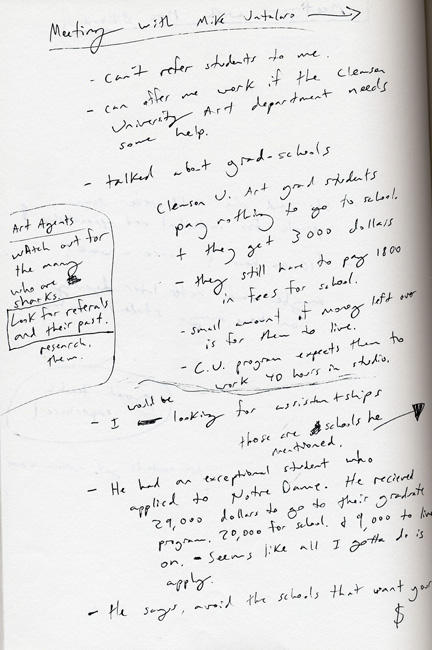 Meeting with Mike Vatalaro
- can't refer students to me.
- can offer me work if the Clemson
University Art department needs
some help.
- talked about grad-schools
Clemson U. Art grad students
pay nothing to go to school.
+ they get 3000 dollars
- they still have to pay 1800
in fees for school.
- small amount of money left over
is for them to live.
- C.U. program expects them to
work 40 hours in studio.
Art Agents
watch out for
the many
who are
sharks.
Look for referals
and their past.
research.
them.
- I would be looking for assistantships
those are schools he
mentioned.
- He had an exceptional student who
applied to Notre Dame. He recieved
29,000 dollars to go to their graduate
program. 20,000 for school. & 9,000 to live
on. - Seems like all I gotta do is
apply.
- He says, avoid the schools that want your
$